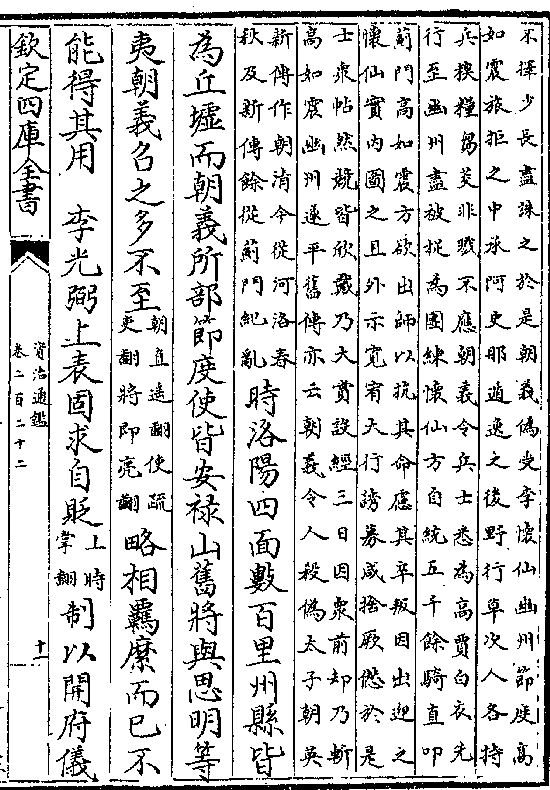 不擇少長盡誅之於是朝義偽史李懷仙幽州節度高
如震旅拒之中承阿史那逃逸之後野行草次人各持
兵揳糧芻茭非戰不應朝義令兵士悉為高賈白衣先
行至幽州盡被捉為團練懷仙方自統五千餘騎直叩
薊門高如震方欲出師以抗其命慮其卒叛因出迎之
懷仙實內圖之且外示寬宥大行謗募咸捨厥愆於是
士衆帖然競皆欣戴乃大賞設經三日因衆前却乃斬
高如震幽州遂平舊傳亦云朝義令人殺偽太子朝英
新傳作朝清今從河洛春
秋及新傳餘從薊門紀亂
時洛陽四面數百里州縣皆
為丘墟而朝義所部節度使皆安禄山舊將與思明等
夷朝義召之多不至朝直遥翻使疏吏翻將即亮翻略相羈縻而已不
能得其用　李光弼上表固求自貶上時掌翻制以開府儀
欽定四庫全書
資治通鑑
卷二百二十二
十一